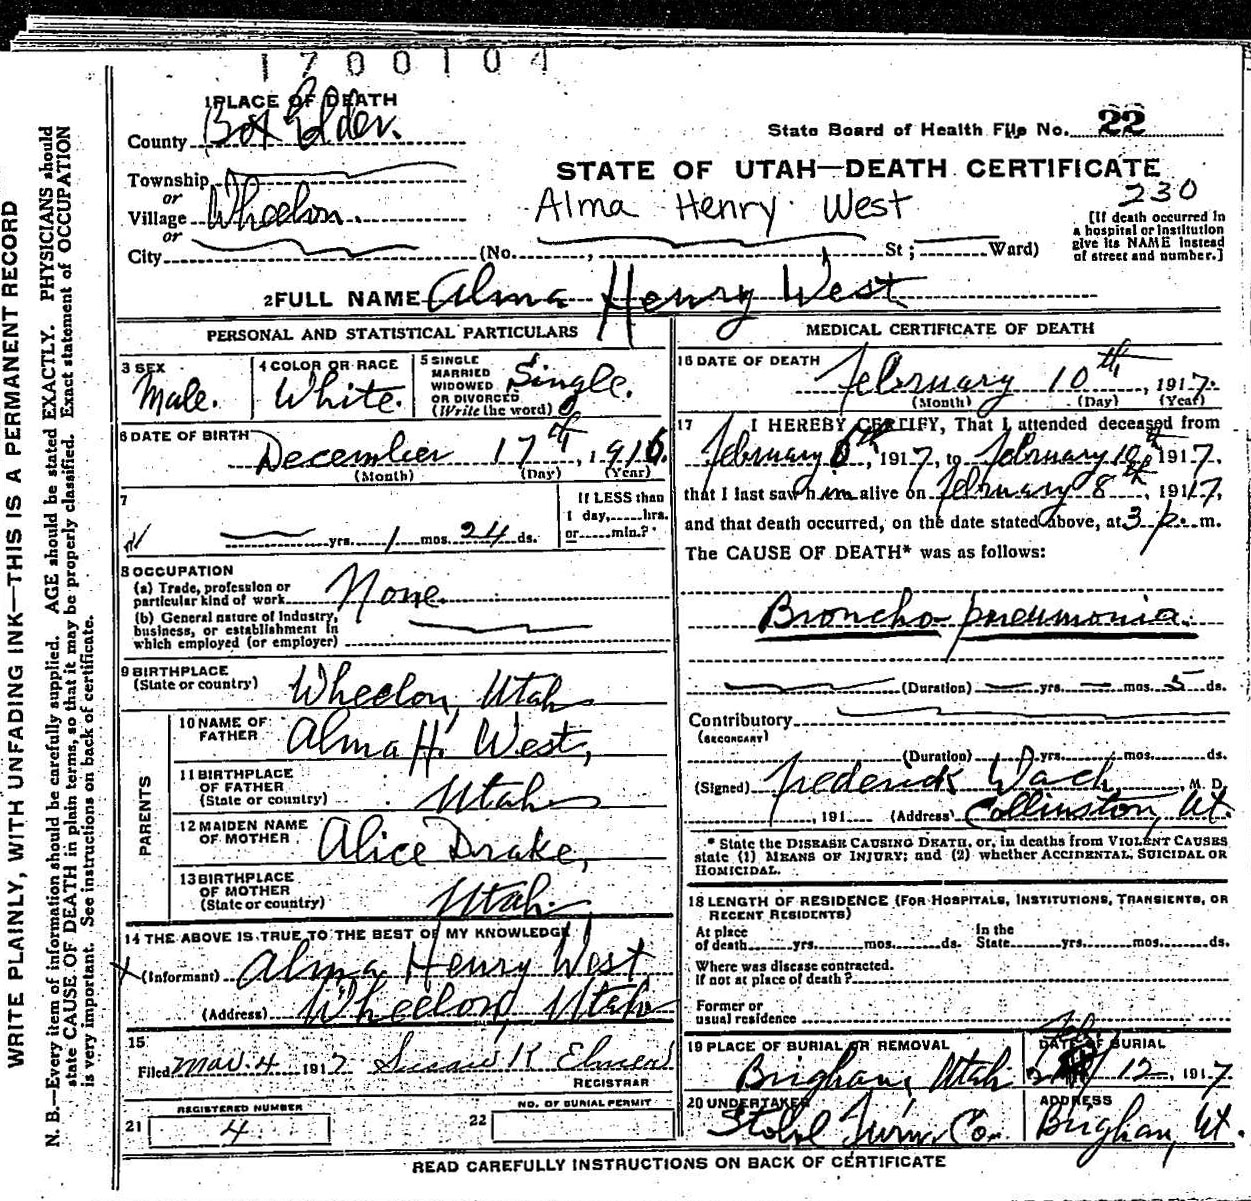 1700104
1 PLACE OF DEATH
County Box Elder.
State Board of Health File No. 22
STATE OF UTAH—DEATH CERTIFICATE
230
Township
or
Village Wheelon.
or
City (No. , St ; Ward)
Alma Henry West
[If death occurred in
a hospital or institution
give its NAME instead
of street and number.]
2 FULL NAME Alma Henry West
PERSONAL AND STATISTICAL PARTICULARS
3 SEX
Male.
4 COLOR OR RACE
White.
5 SINGLE
MARRIED
WIDOWED
OR DIVORCED
(Write the word)
Single.
6 DATE OF BIRTH
December 17th, 1916.
(Month) (Day) (Year)
7
yrs. 1 mos. 24 ds.
If LESS than
1 day, hrs.
or min.?
8 OCCUPATION
(a) Trade, profession or
particular kind of work None.
(b) General nature of Industry,
business, or establishment in
which employed (or employer)
9 BIRTHPLACE
(State or country) Wheelon, Utah
PARENTS
10 NAME OF
FATHER Alma H. West,
11 BIRTHPLACE
OF FATHER
(State or country) Utah
12 MAIDEN NAME
OF MOTHER Alice Drake,
13 BIRTHPLACE
OF MOTHER
(State or country) Utah.
14 THE ABOVE IS TRUE TO THE BEST OF MY KNOWLEDGE
(Informant) Alma Henry West
(Address) Wheelon, Utah
15
Filed Mar. 4 1917 Susan K
REGISTRAR
REGISTERED NUMBER
21 4
NO. OF BURIAL PERMIT
22
MEDICAL CERTIFICATE OF DEATH
16 DATE OF DEATH
February 10th, 1917.
(Month) (Day) (Year)
17 I HEREBY CERTIFY, That I attended deceased from
February 6th, 1917, to February 10th, 1917,
that I last saw him alive on February 8th, 1917,
and that death occurred, on the date stated above, at 3 p. m.
The CAUSE OF DEATH* was as follows:
Broncho-pneumonia.
(Duration) yrs. mos. 5 ds.
Contributory
(SECONDARY)
(Duration) yrs. mos. ds.
(Signed) Frederick Wach, M. D.
, 191 (Address) Collinston, Ut.
* State the DISEASE CAUSING DEATH, or, in deaths from VIOLENT CAUSES
state (1) MEANS OF INJURY; and (2) whether ACCIDENTAL, SUICIDAL OR
HOMICIDAL.
18 LENGTH OF RESIDENCE (FOR HOSPITALS, INSTITUTIONS, TRANSIENTS, OR
RECENT RESIDENTS)
At place
of death yrs. mos. ds.
In the
State yrs. mos. ds.
Where was disease contracted.
If not at place of death?
Former or
usual residence
19 PLACE OF BURIAL OR REMOVAL
Brigham, Utah
DATE OF BURIAL
Feb. 12, 1917
20 UNDERTAKER
Stohl Furn. Co.
ADDRESS
Brigham, Ut.
READ CAREFULLY INSTRUCTIONS ON BACK OF CERTIFICATE
WRITE PLAINLY, WITH UNFADING INK—THIS IS A PERMANENT RECORD
N. B.—Every item of information should be carefully supplied. AGE should be stated EXACTLY. PHYSICIANS should
state CAUSE OF DEATH in plain terms, so that it may be properly classified. Exact statement of OCCUPATION
is very important. See instructions on back of certificate.